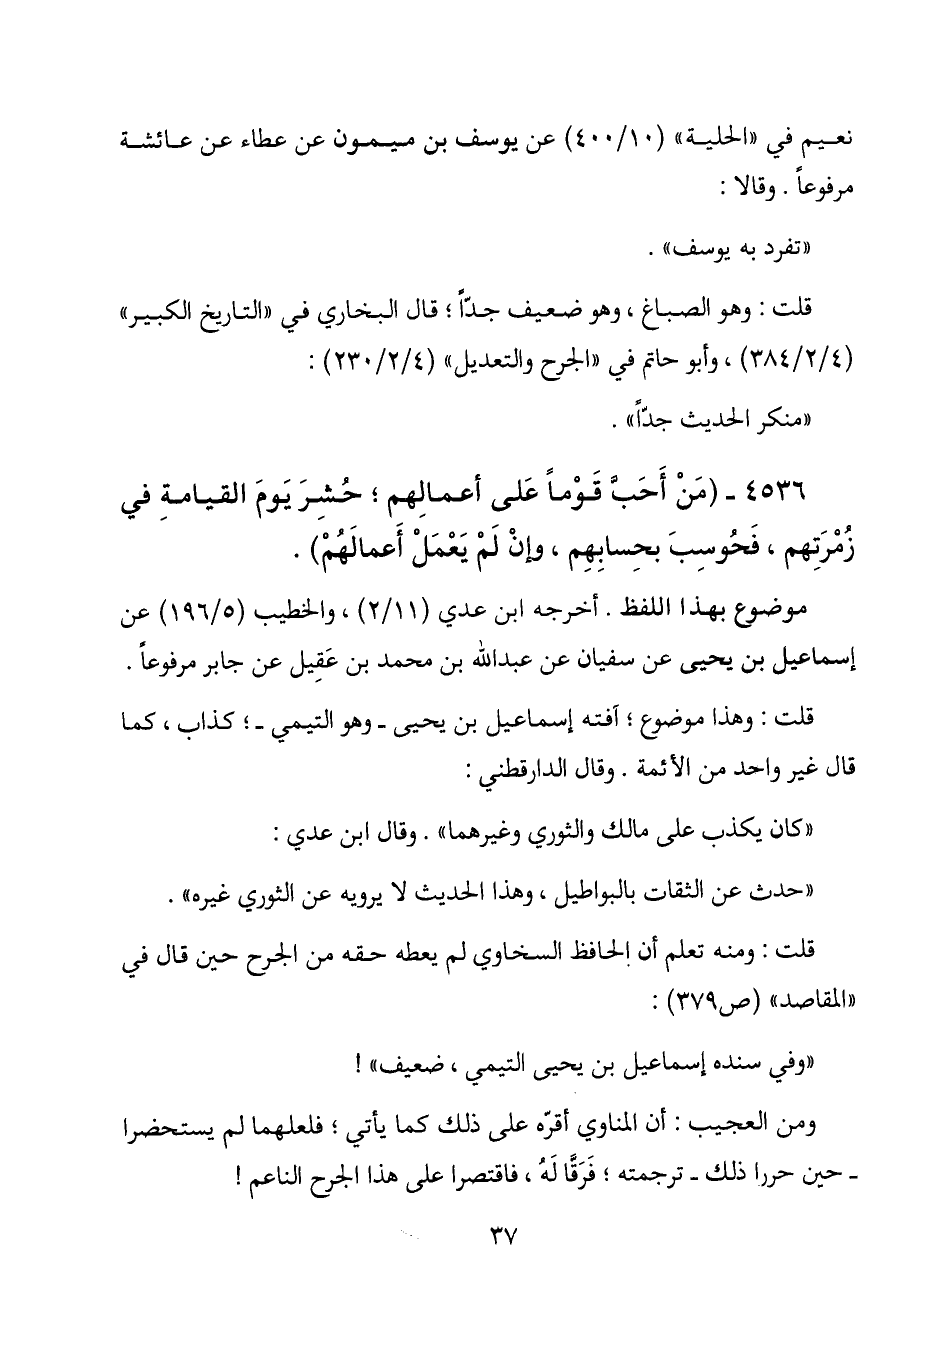 نعيم في «الحلية» (٤٠٠/١٠) عن يوسف بن ميمون عن عطاء عن عائشة
مرفوعاً . وقالا :
«تفرد به يوسف» .
قلت : وهو الصباغ ، وهو ضعيف جدّاً ؛ قال البخاري في «التاريخ الكبير»
(٣٨٤/٢/٤) ، وأبو حاتم في «الجرح والتعديل» (٢٣٠/٢/٤) :
«منكر الحديث جدّاً» .
٤٥٣٦ ـ (مَنْ أَحَبَّ قَوْماً عَلى أعمالِهم ؛ حُشِرَ يَومَ القيامةِ في
زُمْرَتِهم ، فَحُوسِبَ بحِسابِهِم ، وإنْ لَمْ يَعْمَلْ أَعمالَهُمْ) .
موضوع بهذا اللفظ . أخرجه ابن عدي (٢/١١) ، والخطيب (١٩٦/٥) عن
إسماعيل بن يحيى عن سفيان عن عبدالله بن محمد بن عَقِيل عن جابر مرفوعاً .
قلت : وهذا موضوع ؛ آفته إسماعيل بن يحيى ـ وهو التيمي ـ ؛ كذاب ، كما
قال غير واحد من الأئمة . وقال الدارقطني :
«كان يكذب على مالك والثوري وغيرهما» . وقال ابن عدي :
«حدث عن الثقات بالبواطيل ، وهذا الحديث لا يرويه عن الثوري غيره» .
قلت : ومنه تعلم أن الحافظ السخاوي لم يعطه حقه من الجرح حين قال في
«المقاصد» (ص٣٧٩) :
«وفي سنده إسماعيل بن يحيى التيمي ، ضعيف» !
ومن العجيب : أن المناوي أقرّه على ذلك كما يأتي ؛ فلعلهما لم يستحضرا
ـ حين حررا ذلك ـ ترجمته ؛ فَرَقَّا لَهُ ، فاقتصرا على هذا الجرح الناعم !
٣٧